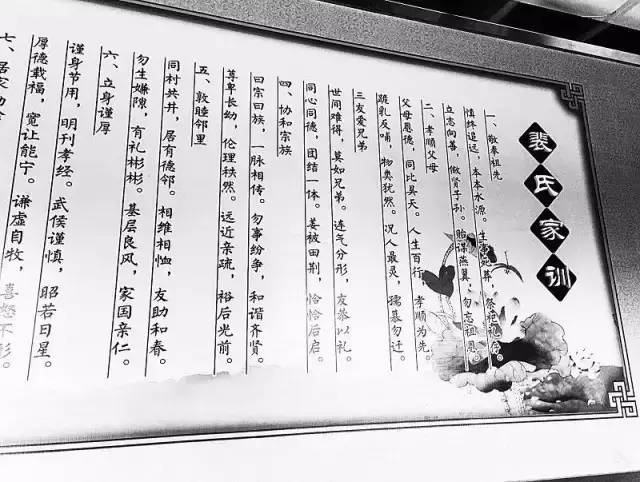 裴氏家训
一、敬奉祖先
慎终追远，木本水源。生事死葬，祭祀礼存。
立志向善，做贤子孙。贻谋燕翼，勿忘祖恩。
二、孝顺父母
父母恩德，同比昊天。人生百行，孝顺为先。
跪乳反哺，物类犹然。况人最灵，孺慕勿迁。
三友爱兄弟
世间难得，莫如兄弟。连气分形，友恭以礼。
同心同德，团结一体。姜被田荆，恰恰后启。
四、协和宗族
曰宗曰族，一脉相传。勿事纷争，和谐齐贤。
尊卑长幼，伦理秩然。远近亲疏，裕后光前。
五、敦睦邻里
同村共井，居有德邻。相维相恤，友助和春。
勿生嫌隙，有礼彬彬。基层良风，家国亲仁。
六、立身谨厚
谨身节用，明刊孝经。武侯谨慎，昭若日星。
厚德载福，宽让能宁。谦虚自牧，喜怒不形。
七、居家勤俭